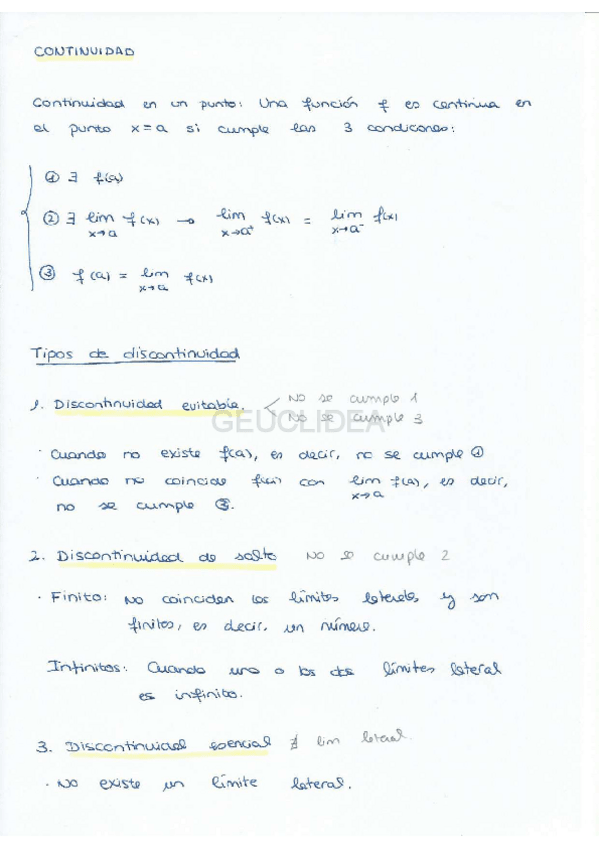 CONTINUIDAD
Continuidad en un punto: Una función f es continua en
el punto x=a si cumple las 3 condiciones:
① ∃ f(a)
② ∃ lim x→a f(x) → lim x→a⁺ f(x) = lim x→a⁻ f(x)
③ f(a) = lim x→a f(x)
Tipos de discontinuidad
1. Discontinuidad evitable. < No se cumple 1
No se cumple 3
GEUCLIDEA
· Cuando no existe f(a), es decir, no se cumple ①
· Cuando no coincide f(a) con lim x→a f(a), es decir,
no se cumple ③.
2. Discontinuidad de salto No se cumple 2
· Finito: No coinciden los límites laterales y son
finitos, es decir, un número.
Infinitos: Cuando uno o los dos límites lateral
es infinito.
3. Discontinuidad esencial ∄ lim lateral.
· No existe un límite lateral.